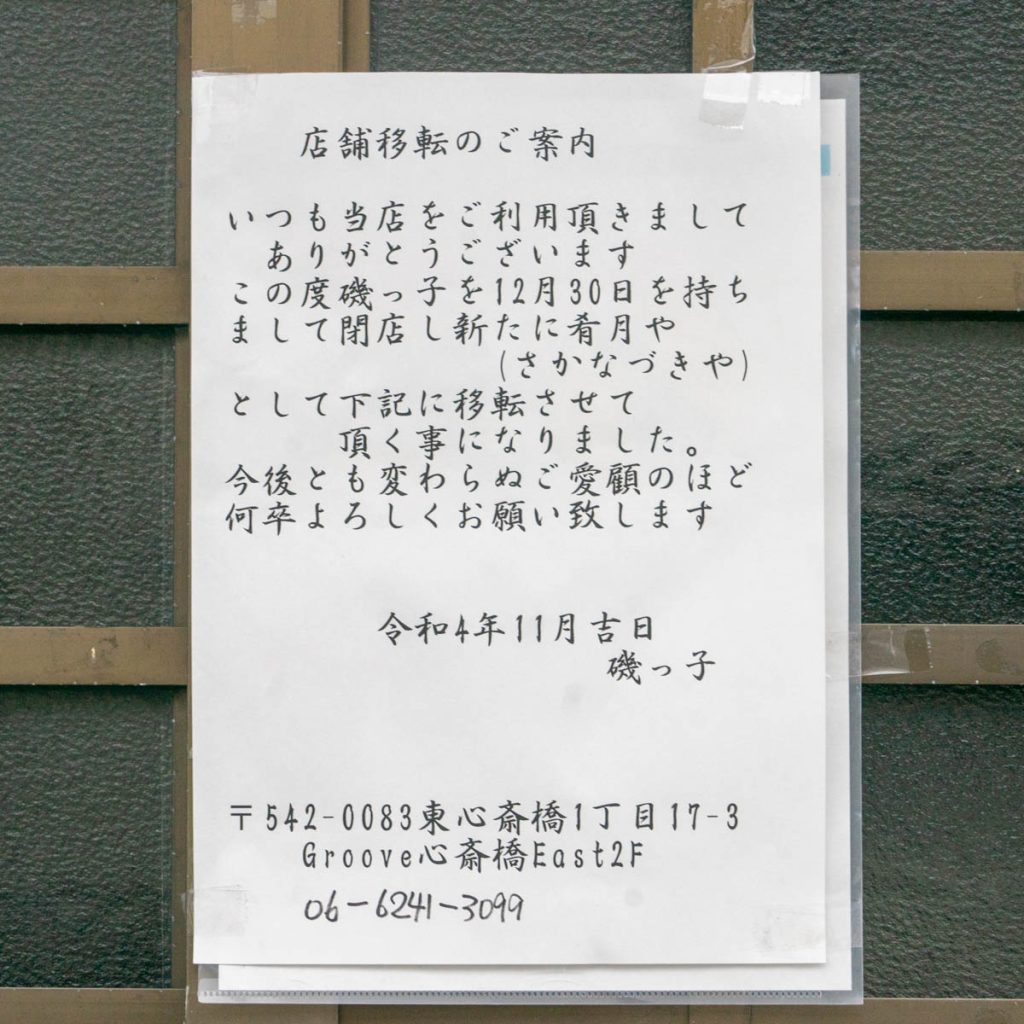 店舗移転のご案内
いつも当店をご利用頂きまして
ありがとうございます
この度磯っ子を12月30日を持ち
まして閉店し新たに肴月や
(さかなづきや)
として下記に移転させて
頂く事になりました。
今後とも変わらぬご愛顧のほど
何卒よろしくお願い致します
令和4年11月吉日
磯っ子
〒542-0083東心斎橋1丁目17-3
Groove心斎橋East2F
06-6241-3099